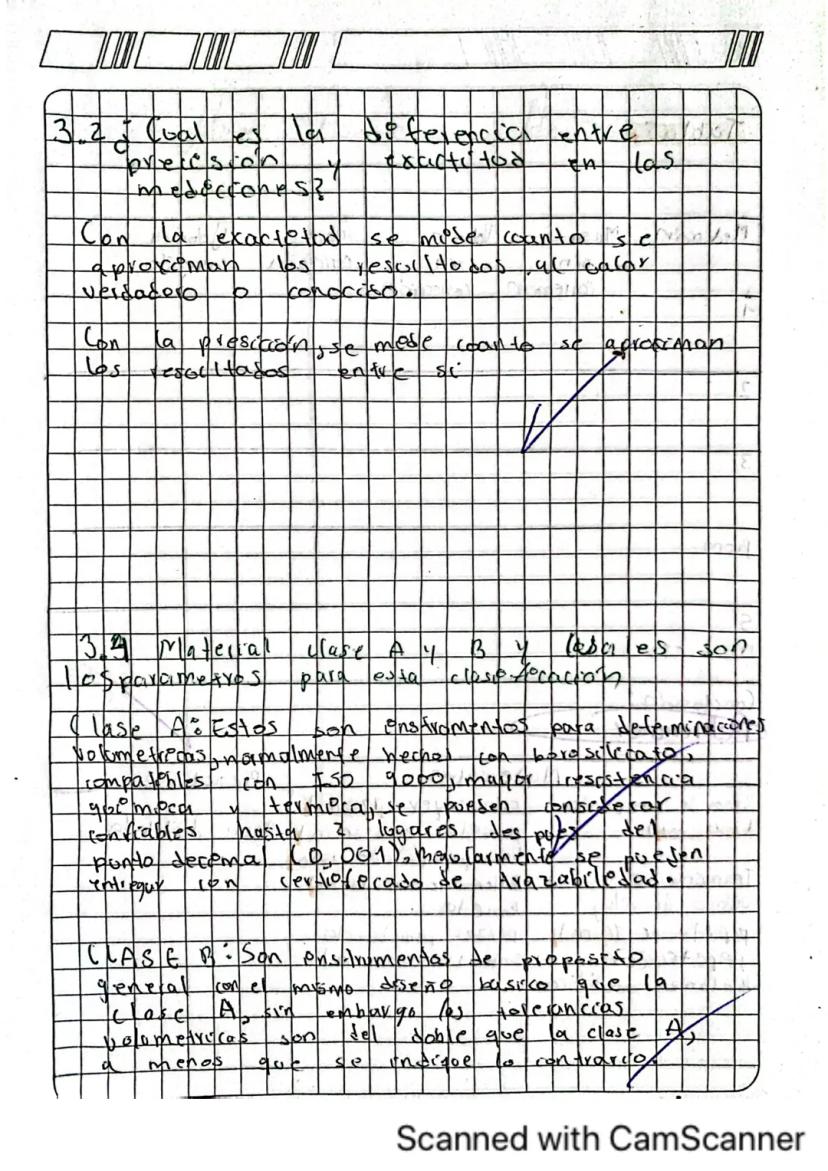 3.2 ¿Cual es la diferencia entre
precisión y exactitud en las
mediciones?
Con la exactitud se mide cuanto se
aproximan los resultados al valor
verdadero o conocido.
Con la presición, se mide cuanto se aproximan
los resultados entre si
3.4 Material clase A y B y cuales son
los parametros para esta clasificación
Clase A: Estos son instrumentos para determinaciones
volumetricas, normalmente hechos con borosilicato,
compatibles con ISO 9000, mayor resistencia
quimica y termica, se pueden considerar
confiables hasta 2 lugares despues del
punto decimal (0.001). Regularmente se pueden
entregar con certificado de trazabilidad.
CLASE B: Son instrumentos de proposito
general con el mismo diseño basico que la
clase A, sin embargo las tolerancias
volumetricas son del doble que la clase A,
a menos que se indique lo contrario.
Scanned with CamScanner